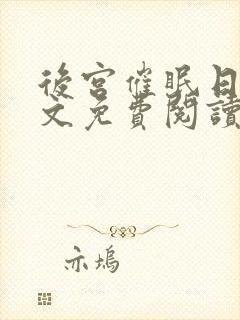 後宮催眠日
文免費閱讀
亦塢